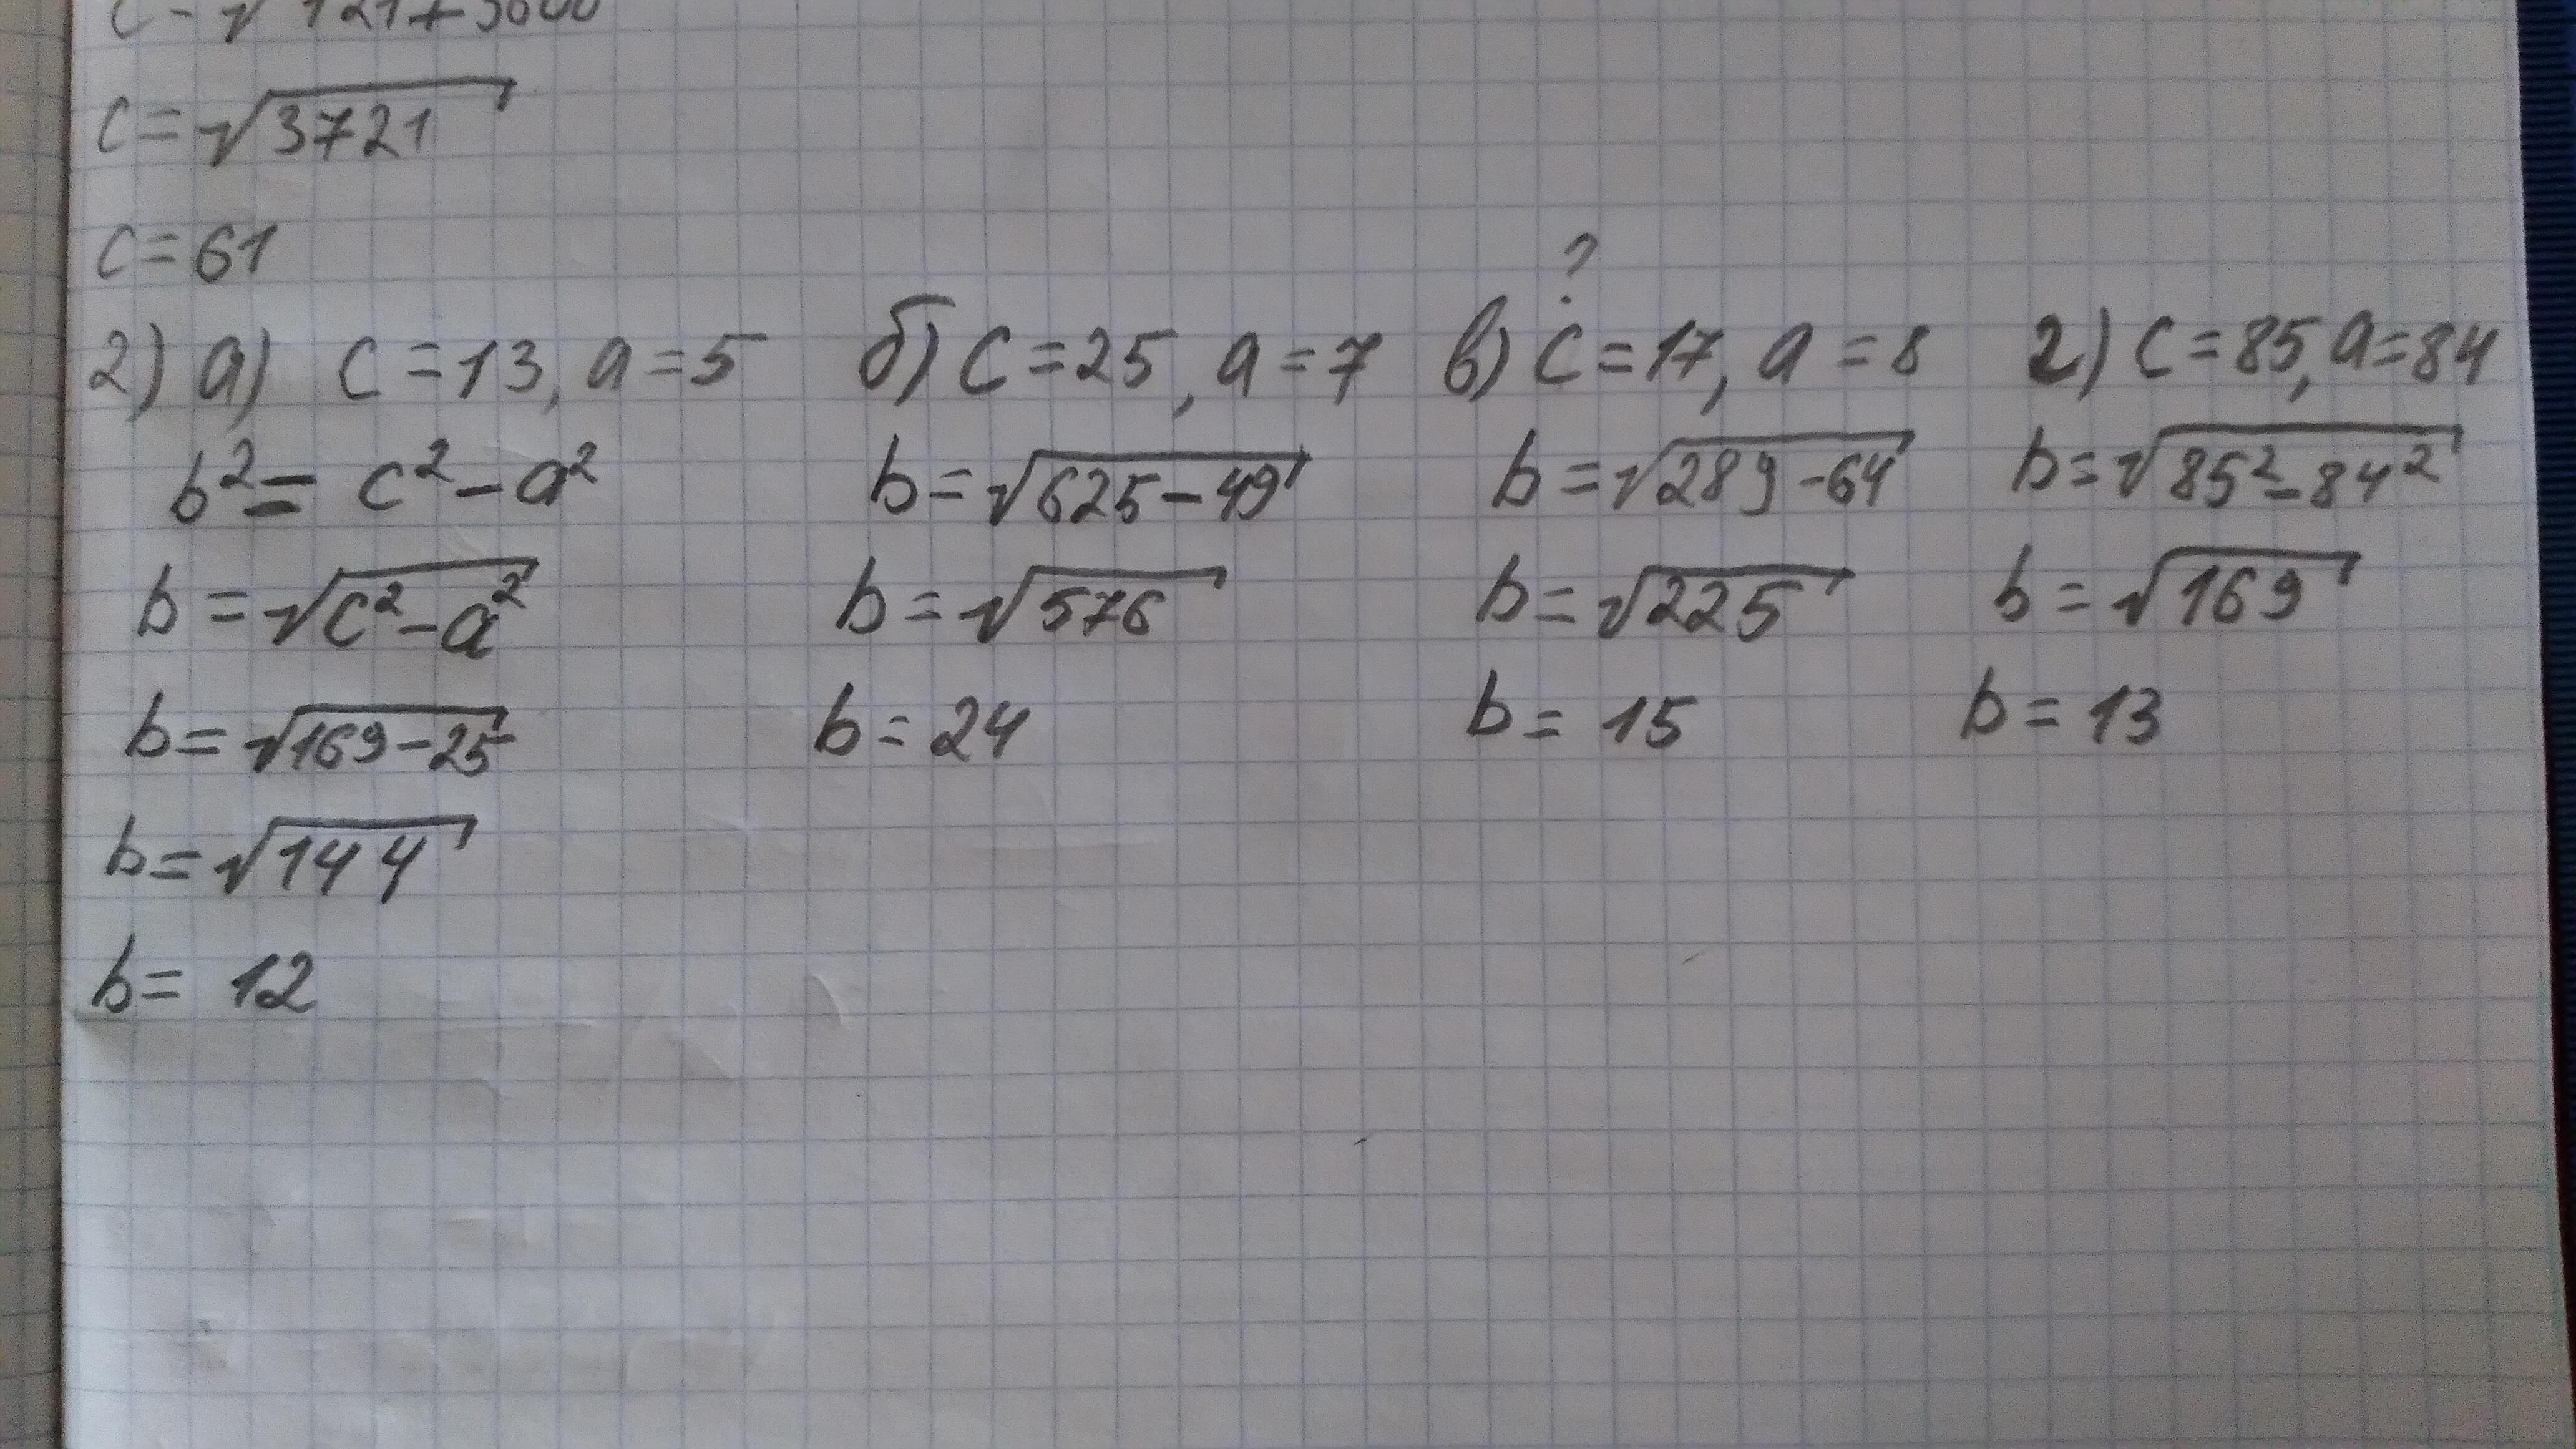 c = √121+3600
c = √3721
c = 61
?
2) а) c = 13, a = 5
b² = c² - a²
b = √c² - a²
b = √169 - 25
b = √144
b = 12
б) c = 25, a = 7
b = √625 - 49
b = √576
b = 24
в) c = 17, a = 8
b = √289 - 64
b = √225
b = 15
г) c = 85, a = 84
b = √85² - 84²
b = √169
b = 13